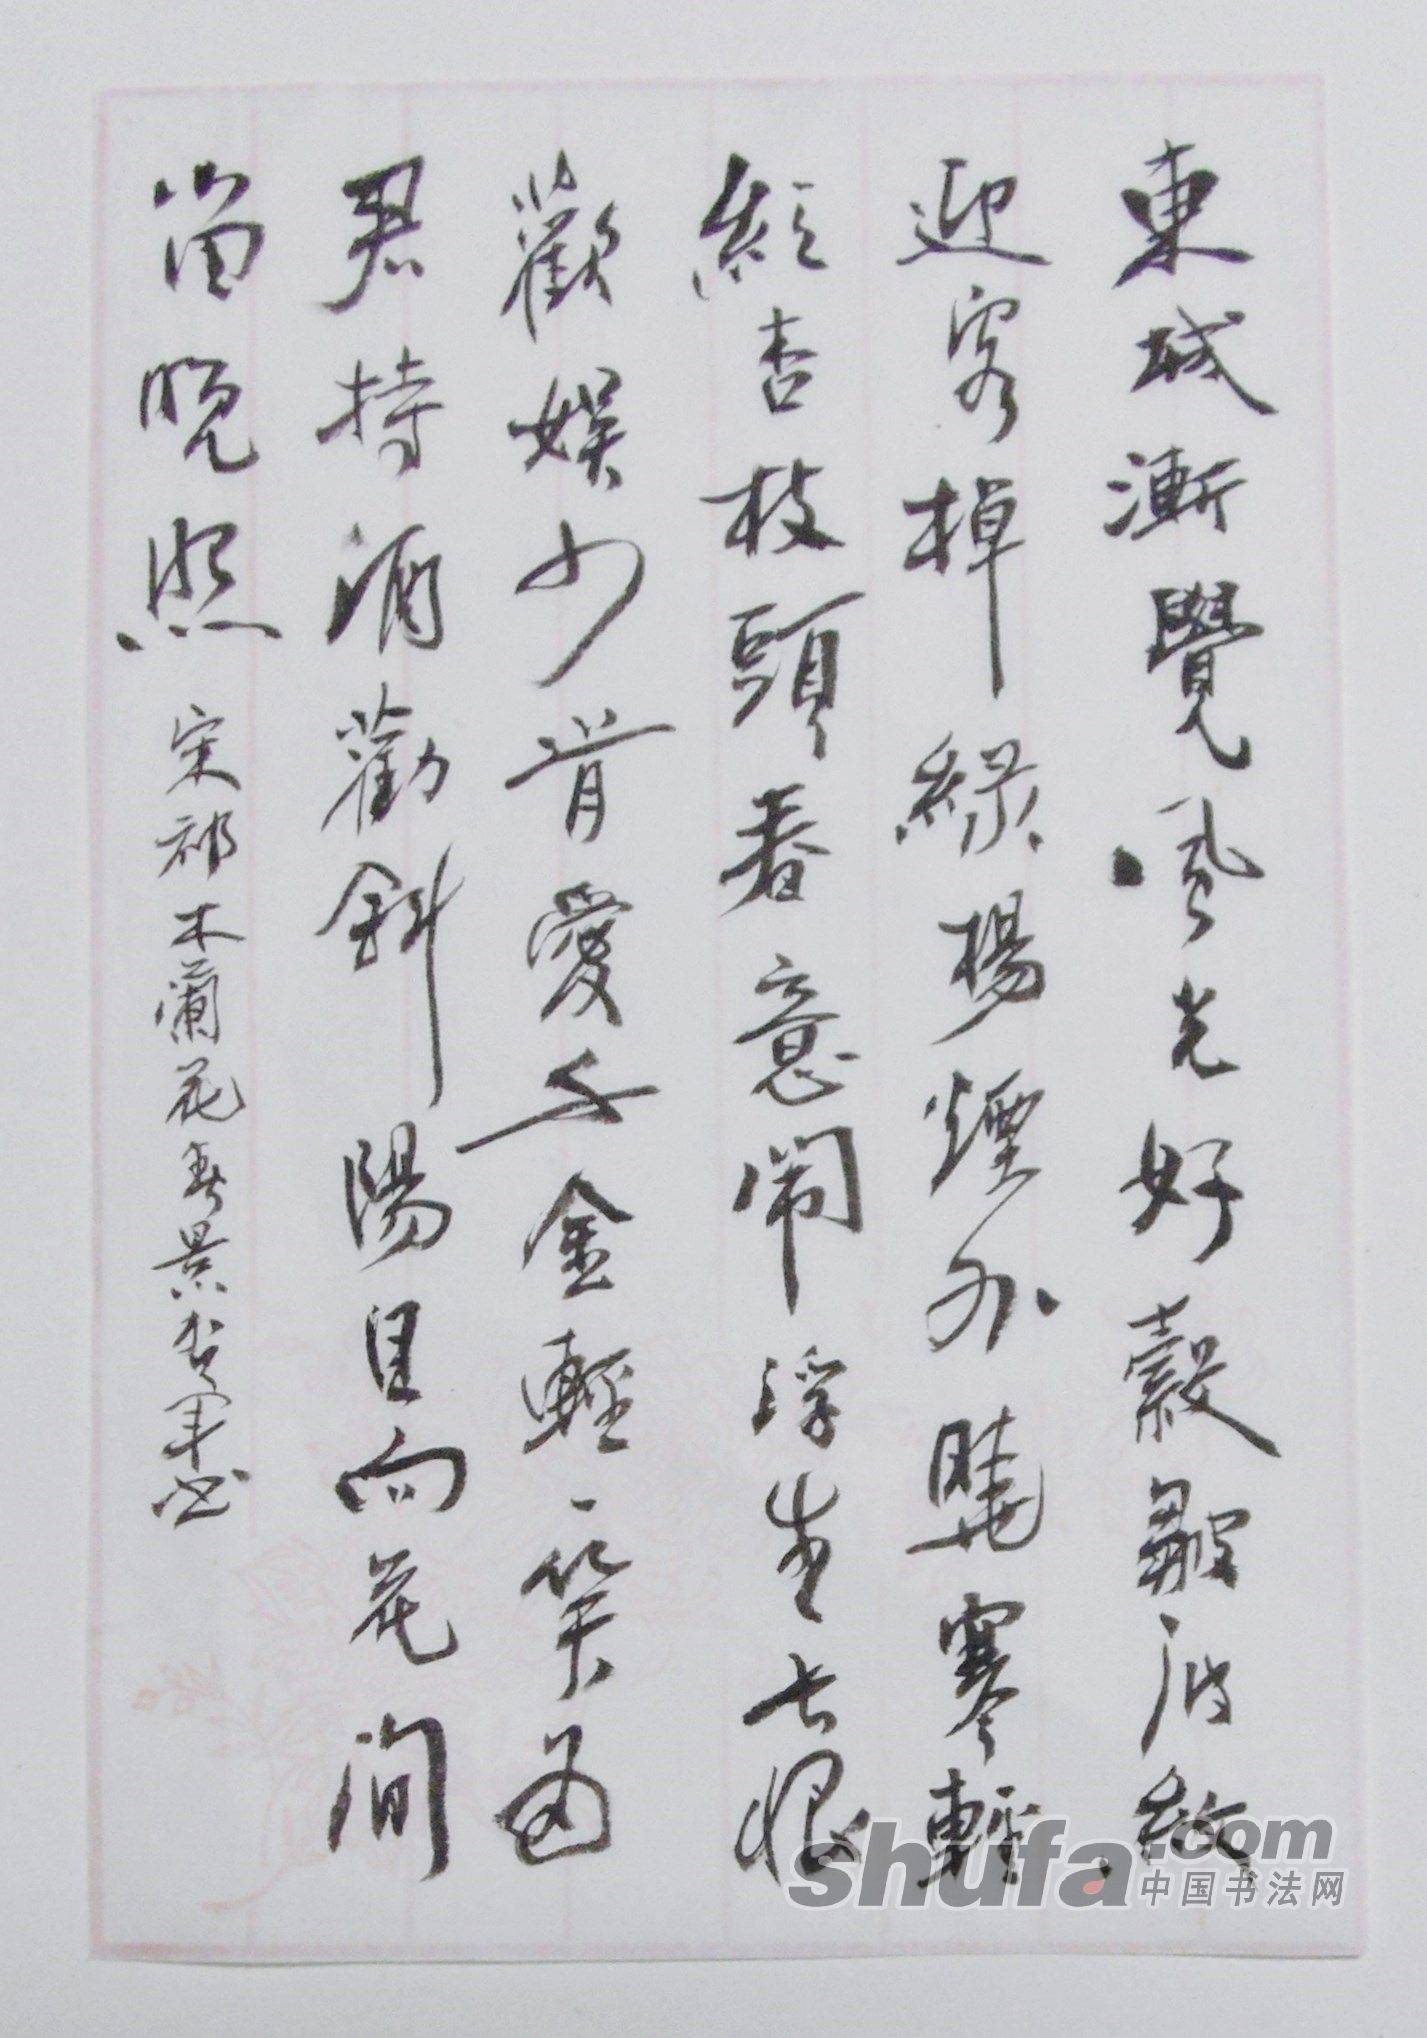 東城漸覺風光好縠皺波紋
迎客棹綠楊煙外曉寒輕
紅杏枝頭春意鬧浮生長恨
歡娛少肯愛千金輕一笑為
君持酒勸斜陽且向花間
留晚照 宋祁木蘭花春景 軍书
shufa.com
中国书法网